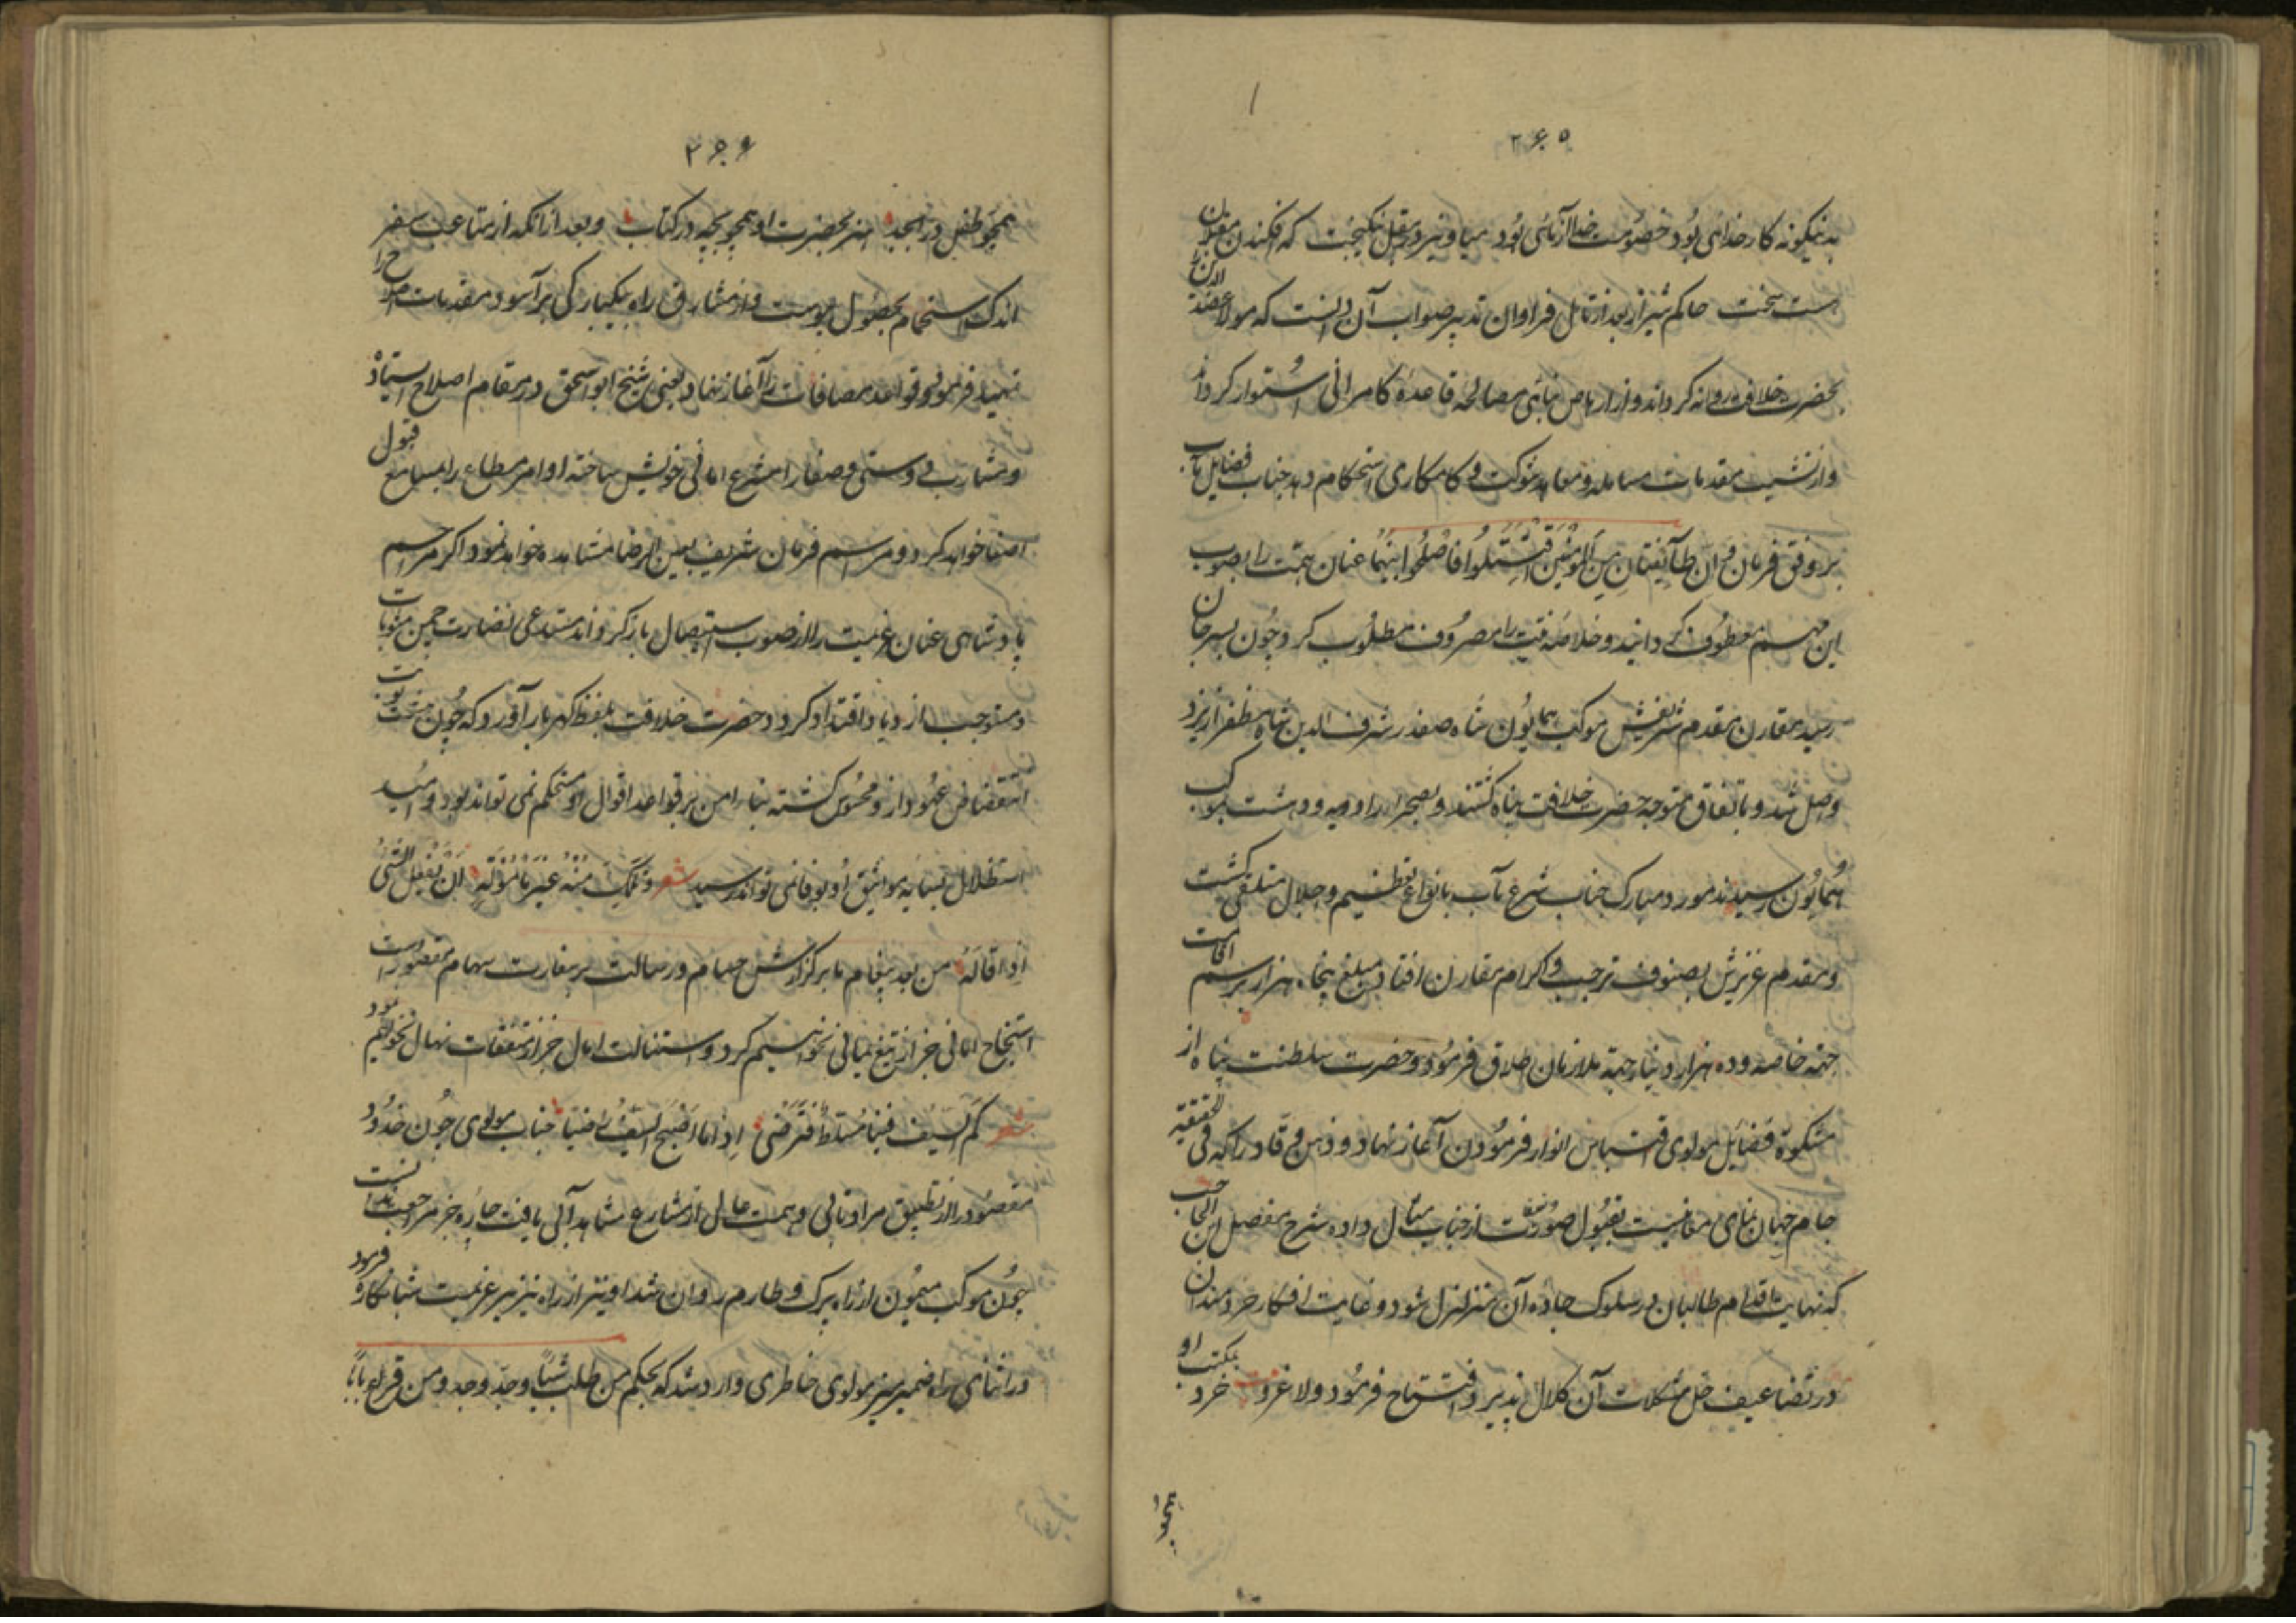 ۲۶۵
بدینگونه کار خدائی بود خصومت خدا آزمائی بود میاویز و مقبل نیکبخت که افکندن مقبلان
است سخت حاکم شیراز بعد از تامل فراوان تدبیر صواب آن دانست که مولانا عضد الدین را
بحضرت خلافت روانه گرداند و از ارهاص مبانی مصالحه قاعده کامرانی استوار گرداند
واز تشیید مقدمات مسامله و معاهد شوکت و کامکاری استحکام دهد جناب فضایل مآب
بر وفق فرمان و ان طآئفتان من المؤمنین اقتتلوا فاصلحوا بینهما عنان همت را بصوب
این مهم معطوف گردانید و خلاصه نیت را مصروف مطلوب کرد و چون بسیرجان
رسید مقارن مقدم شریفش موکب همایون شاه صفدر شرف الدین شاه مظفر از یزد
واصل شد و باتفاق متوجه حضرت خلافت پناه گشتند و بصحرا راودیه و دشت بموکب
همایون رسیدند مورد مبارک جناب شرع مآب بانواع تعظیم و جلال متلقی گشت
و مقدم عزیزش بصنوف ترحیب و اکرام مقارن افتاد مبلغ پنجاه هزار برسم اقامت
جهته خاصه و ده هزار دینار جهته ملازمان اطلاق فرمود و حضرت سلطنت پناه از
مشکوة فضایل مولوی اقتباس انوار فرمودن آغاز نهاد و ذهن وقاد را که فی الحقیقة
جام جهان نمای معانیست بقبول صورت از جناب مثال داده شرح مفصل ابن الحاجب
که نهایت اقدام طالبان در سلوک جاده آن متزلزل شود و غایت افکار خردمندان
در تضاعیف حل مشکلات آن کلال پذیرد افتتاح فرمود ولا غرو خرد بمکتب او
همچو
۲۶۶
همچو طفل در ابجد هنر بحضرت او همچو بچه در کتاب و بعد از آنکه از متاعب سفر
اندک استجمام بحصول پیوست و از مشارق راه یکبارگی برآسود مقدمات صلح را
تمهید فرمود و قواعد مصافات را آغاز نهاد یعنی شیخ ابو اسحق در مقام اصلاح ایستاد
و مشارب دوستی و صفا را مشرع امانی خویش ساخته اوامر مطاع را بمسامع قبول
اصغا خواهد کرد و مراسم فرمان شریف بعین الرضا مشاهده خواهد نمود اگر مراحم
پادشاهی عنان عزیمت را از صوب استیصال باز گرداند مستدعی نضارت چمن مثوبات
و مستوجب ازدیاد اقتدار گردد حضرت خلافت بلفظ گهربار آورد که چون بنوبت
انتقاض عهود از و محسوس گشته بناء امن بر قواعد اقوال او مستحکم نمی تواند بود و امید
استظلال بسایه مواثیق او بوفا نمی تواند رسید شعر و تلک منه غیر مامونة ان تفعل الشئ
اذا قاله من بعد پیغام ما بر گزارش حسام و رسالت بر سفارت سهام مقصور است
استنجاح امانی جز از تیغ یمانی نخواهیم کرد و استنالت امال جز از متقفات نهال نخواهیم نمود
شعر کم السیف فینا مسلط فترضی اذا ما اصبح السیف راضیا جناب مولوی چون خدود
مقصود را از تطبیق مراد تابی و همت عالی از مشارع مشاهد آبی یافت چاره جز مراجعت ندانست
چون موکب میمون از راه پرک و طارم روان شد او نیز از راه نیریز عزیمت شبانکاره فرمود
در اثنای راه ضمیر منیر مولوی خاطری وارد شد که بحکم من طلب شیئا و جد وجد و من قرع بابا